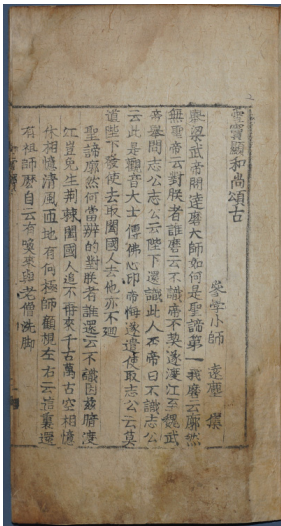 雪竇顯和尚頌古
參學小師 遠塵 集
舉梁武帝問達磨大師如何是聖諦第一義磨云廓然
無聖帝云對朕者誰磨云不識帝不契遂渡江至魏武
帝舉問志公志公云陛下還識此人否帝曰不識志公
云此是觀音大士傳佛心印帝悔遂遣使取志公云莫
道陛下發使去取闔國人去他亦不廻
聖諦廓然何當辨的對朕者誰還云不識因茲暗渡
江豈免生荆棘闔國人追不再來千古萬古空相憶
休相憶清風匝地有何極師顧視左右云這裏還
有祖師麽自云有喚來與老僧洗脚